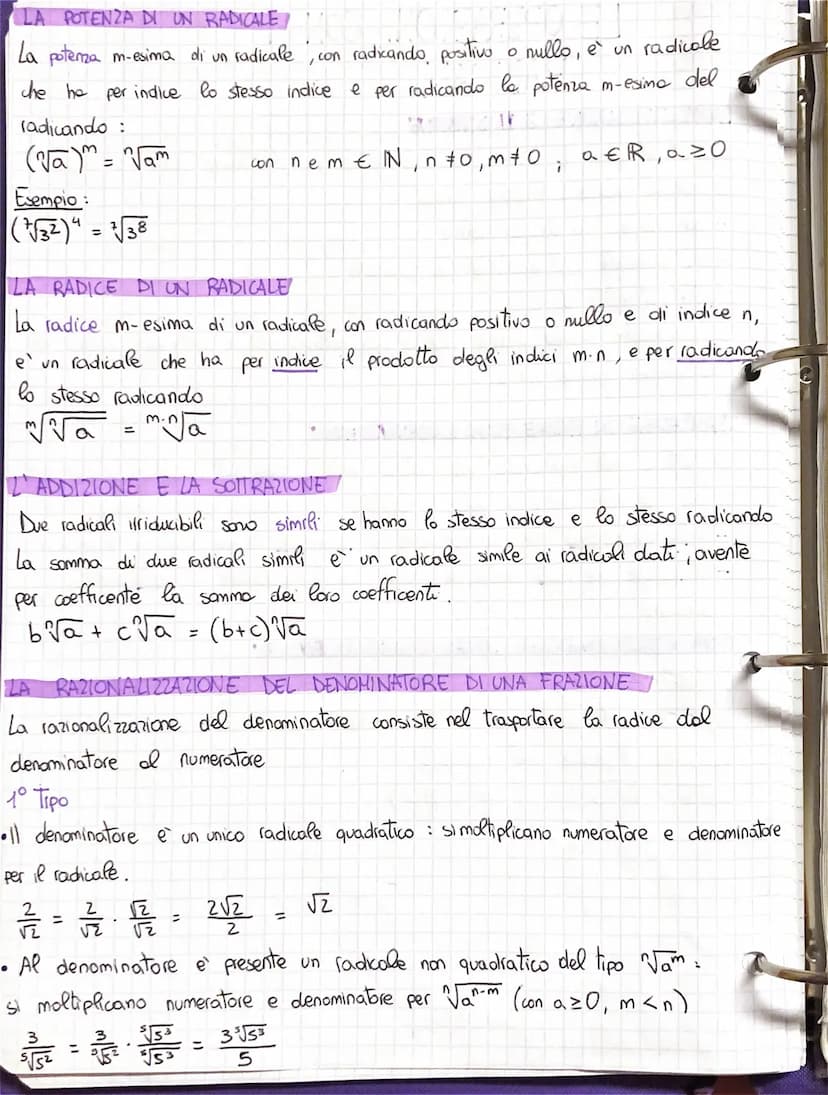 LA POTENZA DI UN RADICALE
La potenza m-esima di un radicale, con radicando, positivo o nullo, è un radicale
che ha per indice lo stesso indice e per radicando la potenza m-esima del
radicando :
(ⁿ√a)ᵐ = ⁿ√aᵐ con n e m ∈ ℕ, n ≠ 0, m ≠ 0 ; a ∈ ℝ, a ≥ 0
Esempio :
(⁷√3²)⁴ = ⁷√3⁸
LA RADICE DI UN RADICALE
La radice m-esima di un radicale, con radicando positivo o nullo e di indice n,
e' un radicale che ha per indice il prodotto degli indici m·n, e per radicando
lo stesso radicando
ᵐ√ⁿ√a = ᵐ·ⁿ√a
L'ADDIZIONE E LA SOTTRAZIONE
Due radicali irriducibili sono simili se hanno lo stesso indice e lo stesso radicando
La somma di due radicali simili e' un radicale simile ai radicali dati, avente
per coefficente la somma dei loro coefficenti.
bⁿ√a + cⁿ√a = (b+c)ⁿ√a
LA RAZIONALIZZAZIONE DEL DENOMINATORE DI UNA FRAZIONE
La razionalizzazione del denominatore consiste nel trasportare la radice dal
denominatore al numeratore
1° Tipo
• Il denominatore è un unico radicale quadratico : si moltiplicano numeratore e denominatore
per il radicale.
2/√2 = 2/√2 · √2/√2 = 2√2/2 = √2
• Al denominatore è presente un radicale non quadratico del tipo ⁿ√aᵐ :
si moltiplicano numeratore e denominatore per ⁿ√aⁿ⁻ᵐ (con a ≥ 0, m < n)
3/⁵√5² = 3/⁵√5² · ⁵√5³/⁵√5³ = 3⁵√5³/5